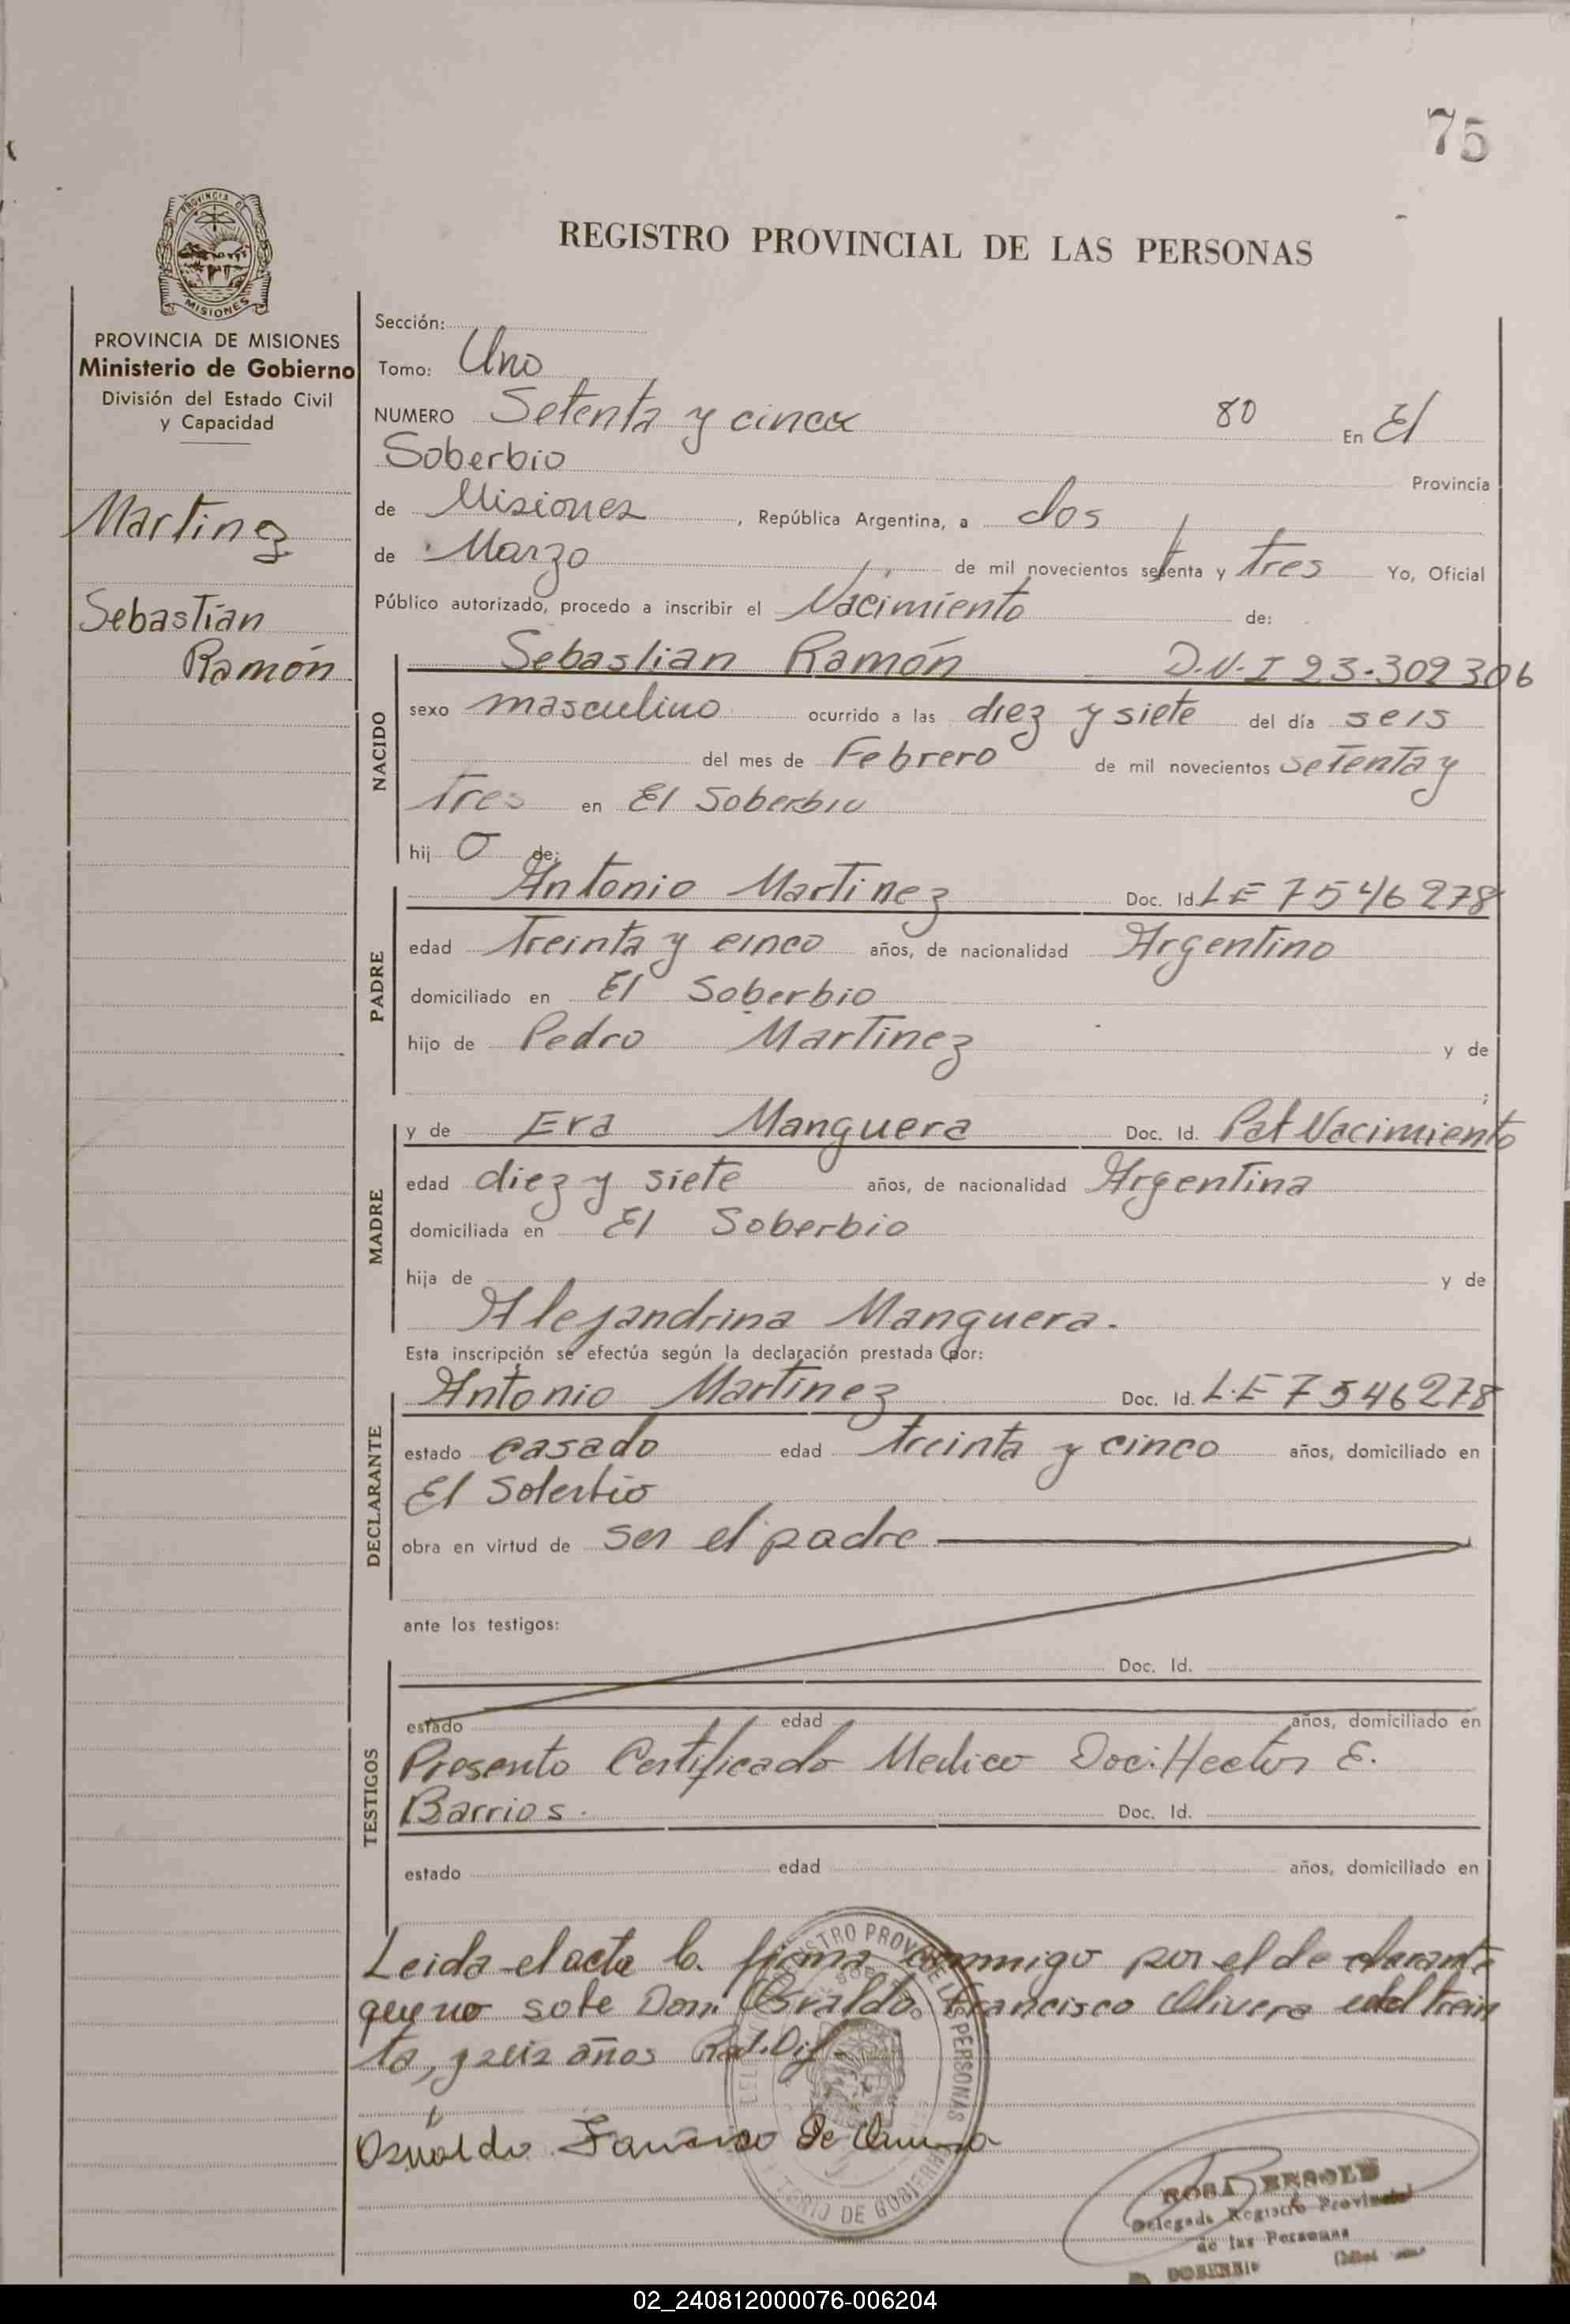 75
REGISTRO PROVINCIAL DE LAS PERSONAS
PROVINCIA DE MISIONES
MISIONES
PROVINCIA DE MISIONES
Ministerio de Gobierno
División del Estado Civil
y Capacidad
Martinez
Sebastián
Ramón
Sección:
Tomo: Uno
NUMERO Setenta y cinco 80 En El
Soberbio Provincia
de Misiones, República Argentina, a dos
de Marzo de mil novecientos setenta y tres Yo, Oficial
Público autorizado, procedo a inscribir el Nacimiento de:
NACIDO
Sebastian Ramón D.N.I 23.302306
sexo masculino ocurrido a las diez y siete del día seis
del mes de Febrero de mil novecientos setenta y
tres en El Soberbio
hij o de:
PADRE
Antonio Martinez Doc. Id. LE 7546278
edad treinta y cinco años, de nacionalidad Argentino
domiciliado en El Soberbio
hijo de Pedro Martinez y de
;
MADRE
y de Eva Manguera Doc. Id. Pat Nacimiento
edad diez y siete años, de nacionalidad Argentina
domiciliada en El Soberbio
hija de y de
Alejandrina Manguera.
Esta inscripción se efectúa según la declaración prestada por:
DECLARANTE
Antonio Martinez Doc. Id. L.E 7546278
estado casado edad treinta y cinco años, domiciliado en
El Soberbio
obra en virtud de ser el padre
ante los testigos:
TESTIGOS
Doc. Id.
estado edad años, domiciliado en
Presento Certificado Medico Doc. Hector E.
Barrios. Doc. Id.
estado edad años, domiciliado en
Leida el acta la firma conmigo por el declarante
que no sabe Don Osvaldo Francisco Olivera edad trein
ta y seis años
Osvaldo Francisco De
ROSA BENGOLD
Delegada Registro Provincial
de las Personas
SOBERBIO
02_240812000076-006204